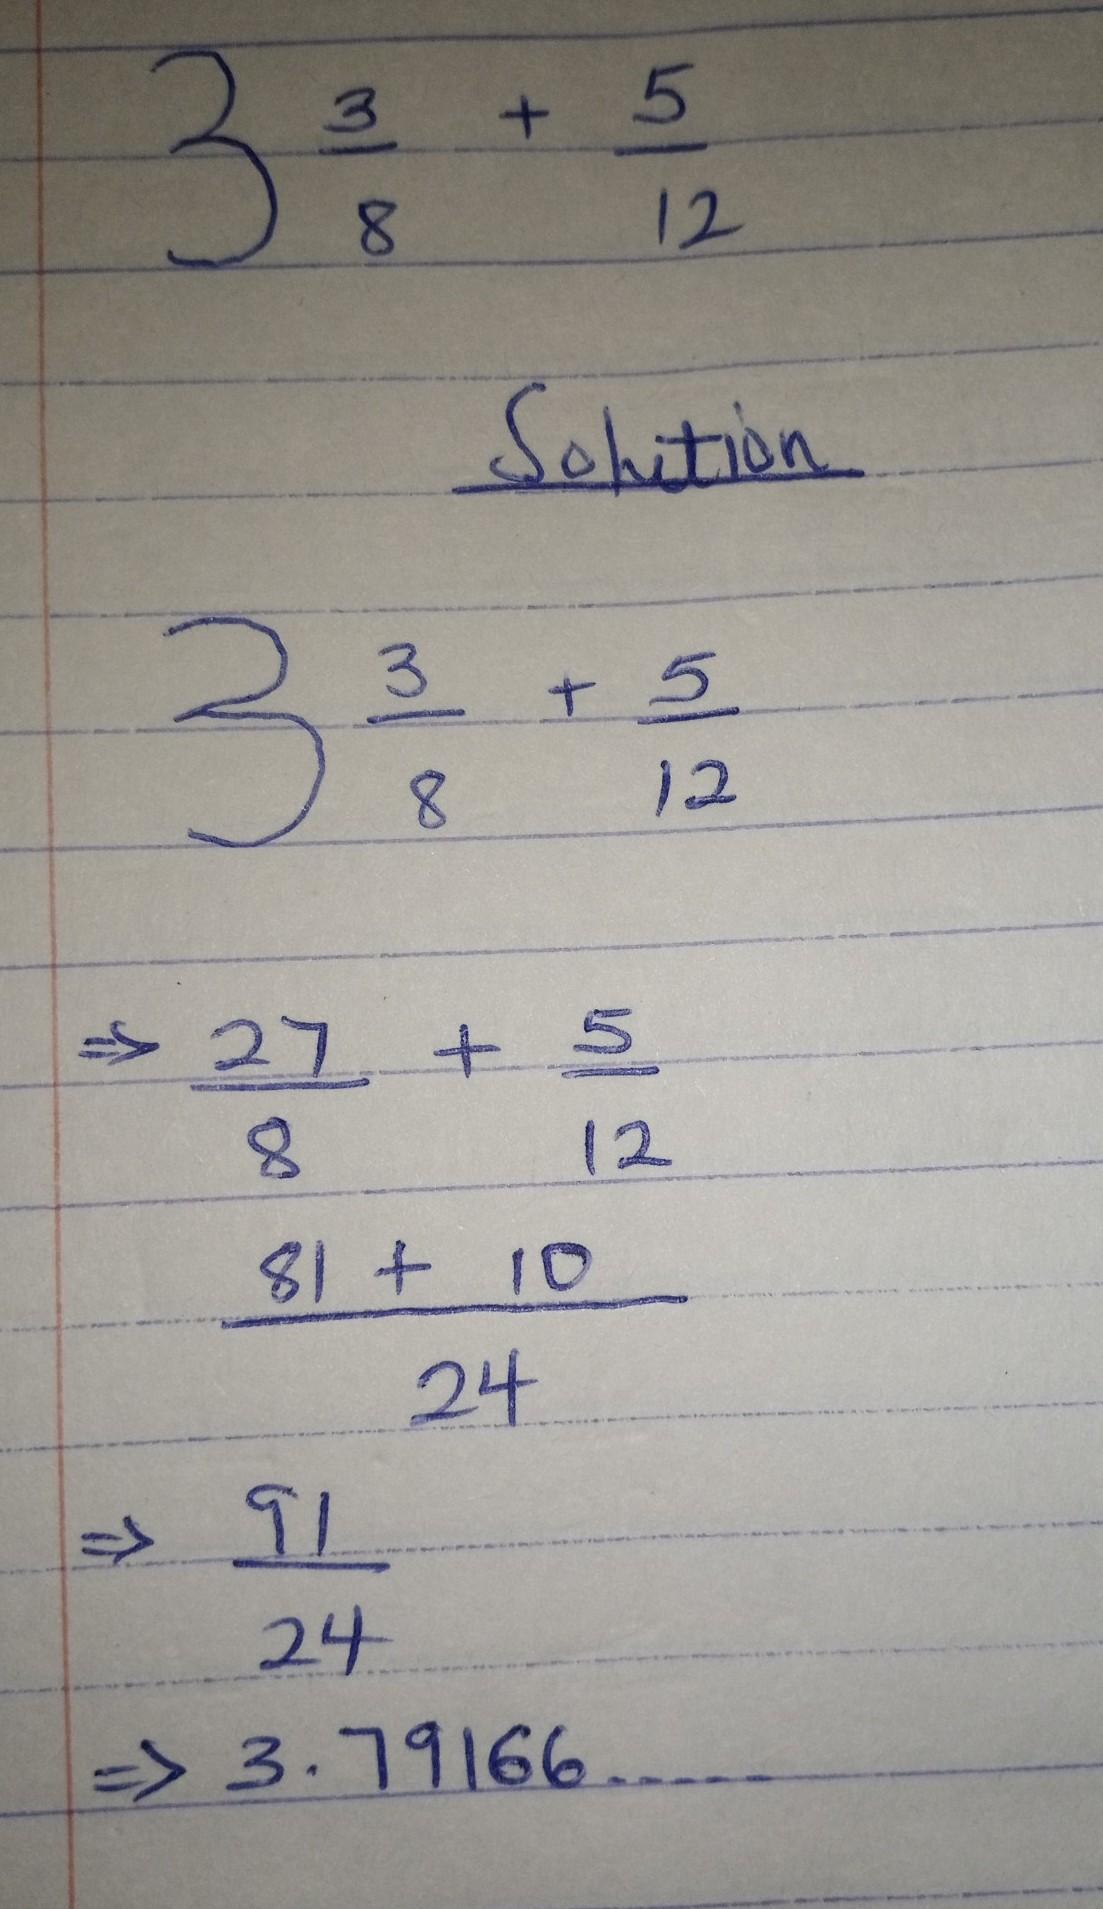 3 3/8 + 5/12
Solution
3 3/8 + 5/12
⇒ 27/8 + 5/12
81 + 10 / 24
⇒ 91/24
⇒ 3.79166......